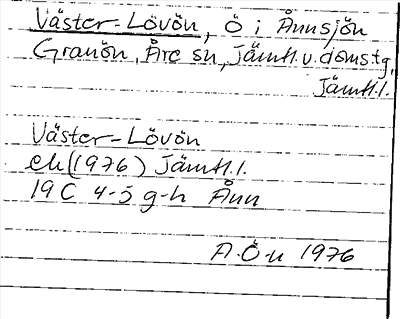 Väster-Lövön, ö i Ånnsjön
Granön, Åre sn, Jämtl. v. domstg,
Jämtl.l.
Väster-Lövön
ek (1976) Jämtl.l.
19 C 4-5 g-h Ånn
A.Ö-n 1976